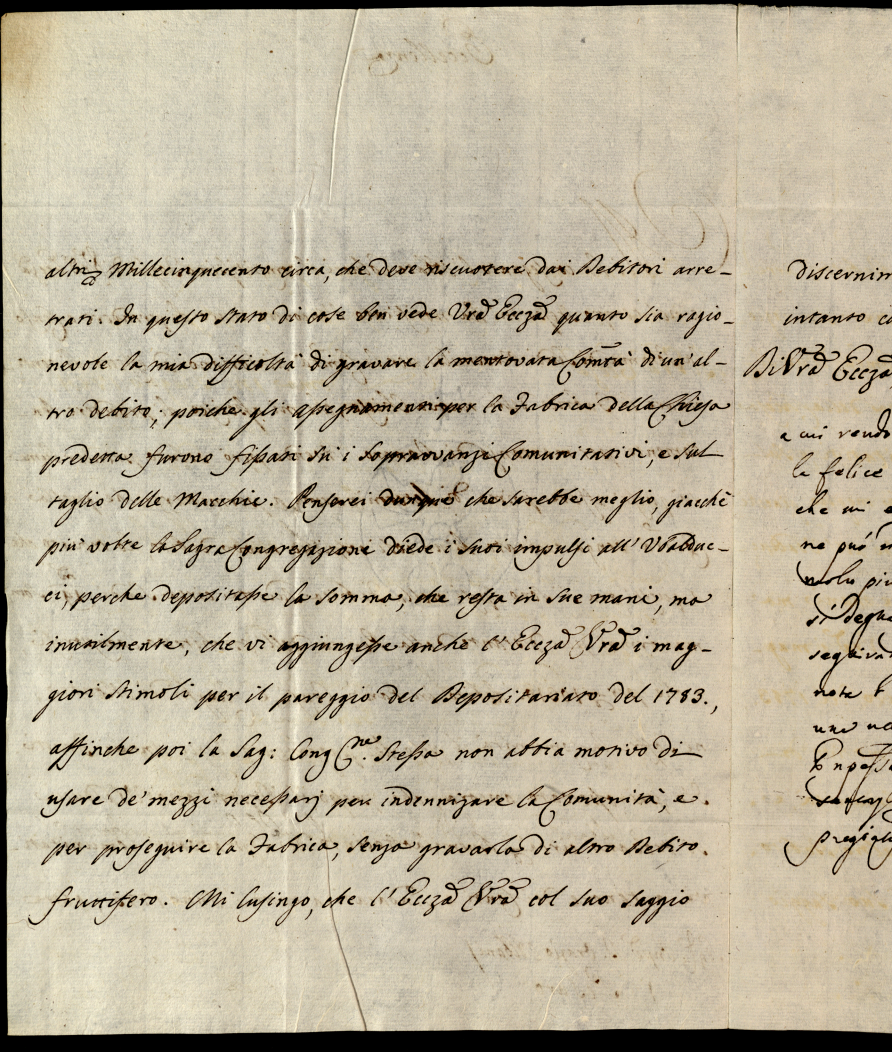 altri Millecinquecento circa, che deve riscuotere dai Debitori arre-
trati. In questo stato di cose ben vede Vrã Ecczã quanto sia ragio-
nevole la mia difficoltà di gravare la mentovata Com̃tà di un'al-
tro debito; poiche gli assegnamenti per la Fabrica della Chiesa
predetta furono fissati su i sopravvanzi Comunitativi, e sul
taglio delle Macchie. Penserei dunque che sarebbe meglio, giacchè
più volte la Sagra Congregazione diede i suoi impulsi all' Ubalduc-
ci, perche depositasse la somma, che resta in sue mani, ma
inutilmente, che vi aggiungesse anche l' Ecczã Vrã i mag-
giori stimoli per il pareggio del Depositariato del 1783.,
affinche poi la Sag: Cong.ne stessa non abbia motivo di
usare de' mezzi necessarj per indennizare la Comunità, e
per proseguire la Fabrica, senza gravarla di altro Debito
fruttifero. Mi lusingo, che l' Ecczã Vrã col suo saggio
discernim
intanto c
Di Vrã Ecczã
a cui rendo
la felice
che mi
ne può
molto piu
si degn
seguiva
nota
una
pregiat